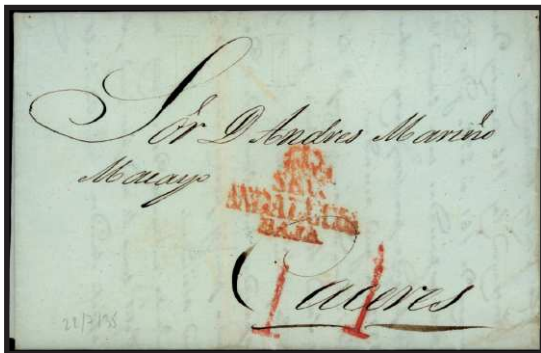 Sor D Andres Mariño
Macayo
ANDALUCIA
BAJA
Caceres
11
22/7/35